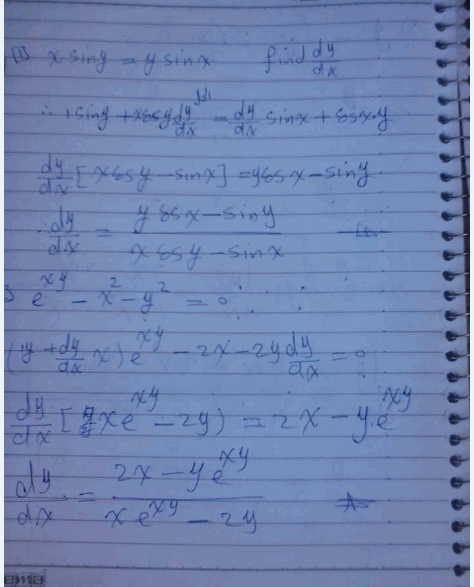 (1) x sin y = y sin x find dy/dx
∴ 1 sin y + x cos y dy/dx = dy/dx sin x + cos x · y
dy/dx [x cos y − sin x] = y cos x − sin y
dy/dx = (y cos x − sin y)/(x cos y − sin x)
e^xy − x² − y² = 0
(y + dy/dx x) e^xy − 2x − 2y dy/dx = 0
dy/dx [x e^xy − 2y) = 2x − y e^xy
dy/dx = (2x − y e^xy)/(x e^xy − 2y)